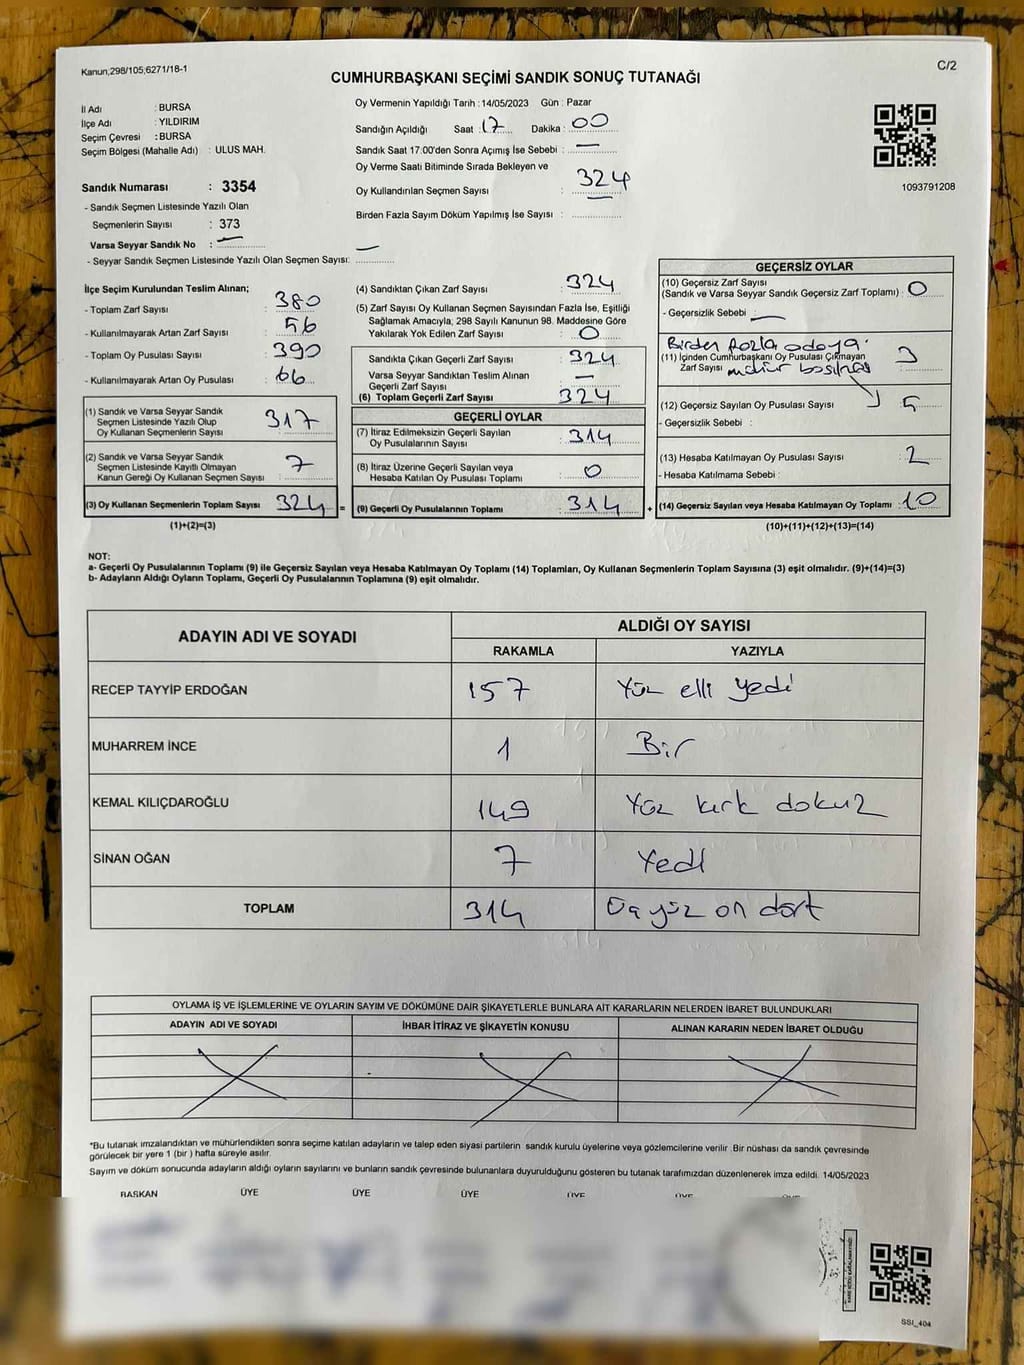 Kanun;298/105;6271/18-1
C/2
CUMHURBAŞKANI SEÇİMİ SANDIK SONUÇ TUTANAĞI
İl Adı : BURSA
İlçe Adı : YILDIRIM
Seçim Çevresi : BURSA
Seçim Bölgesi (Mahalle Adı) : ULUS MAH.
Sandık Numarası : 3354
- Sandık Seçmen Listesinde Yazılı Olan
Seçmenlerin Sayısı : 373
Varsa Seyyar Sandık No : —
- Seyyar Sandık Seçmen Listesinde Yazılı Olan Seçmen Sayısı: —
Oy Vermenin Yapıldığı Tarih : 14/05/2023 Gün : Pazar
Sandığın Açıldığı Saat : 17 Dakika : 00
Sandık Saat 17.00'den Sonra Açımış İse Sebebi : —
Oy Verme Saati Bitiminde Sırada Bekleyen ve
Oy Kullandırılan Seçmen Sayısı : 324
Birden Fazla Sayım Döküm Yapılmış İse Sayısı :
1093791208
İlçe Seçim Kurulundan Teslim Alınan;
- Toplam Zarf Sayısı : 380
- Kullanılmayarak Artan Zarf Sayısı : 56
- Toplam Oy Pusulası Sayısı : 390
- Kullanılmayarak Artan Oy Pusulası : 66
(1) Sandık ve Varsa Seyyar Sandık
Seçmen Listesinde Yazılı Olup
Oy Kullanan Seçmenlerin Sayısı : 317
(2) Sandık ve Varsa Seyyar Sandık
Seçmen Listesinde Kayıtlı Olmayan
Kanun Gereği Oy Kullanan Seçmen Sayısı : 7
(3) Oy Kullanan Seçmenlerin Toplam Sayısı : 324 =
(1)+(2)=(3)
(4) Sandıktan Çıkan Zarf Sayısı : 324
(5) Zarf Sayısı Oy Kullanan Seçmen Sayısından Fazla İse, Eşitliği
Sağlamak Amacıyla; 298 Sayılı Kanunun 98. Maddesine Göre
Yakılarak Yok Edilen Zarf Sayısı : 0
Sandıkta Çıkan Geçerli Zarf Sayısı : 324
Varsa Seyyar Sandıktan Teslim Alınan
Geçerli Zarf Sayısı : —
(6) Toplam Geçerli Zarf Sayısı : 324
GEÇERLİ OYLAR
(7) İtiraz Edilmeksizin Geçerli Sayılan
Oy Pusulalarının Sayısı : 314
(8) İtiraz Üzerine Geçerli Sayılan veya
Hesaba Katılan Oy Pusulası Toplamı : 0
(9) Geçerli Oy Pusulalarının Toplamı : 314 +
GEÇERSİZ OYLAR
(10) Geçersiz Zarf Sayısı
(Sandık ve Varsa Seyyar Sandık Geçersiz Zarf Toplamı) : 0
- Geçersizlik Sebebi : —
Birden fazla adaya
(11) İçinden Cumhurbaşkanı Oy Pusulası Çıkmayan
Zarf Sayısı : 3
mühür basılması
(12) Geçersiz Sayılan Oy Pusulası Sayısı : 5
- Geçersizlik Sebebi :
(13) Hesaba Katılmayan Oy Pusulası Sayısı : 2
- Hesaba Katılmama Sebebi :
(14) Geçersiz Sayılan veya Hesaba Katılmayan Oy Toplamı : 10
(10)+(11)+(12)+(13)=(14)
NOT:
a- Geçerli Oy Pusulalarının Toplamı (9) ile Geçersiz Sayılan veya Hesaba Katılmayan Oy Toplamı (14) Toplamları, Oy Kullanan Seçmenlerin Toplam Sayısına (3) eşit olmalıdır. (9)+(14)=(3)
b- Adayların Aldığı Oyların Toplamı, Geçerli Oy Pusulalarının Toplamına (9) eşit olmalıdır.
ADAYIN ADI VE SOYADI
ALDIĞI OY SAYISI
RAKAMLA YAZIYLA
RECEP TAYYİP ERDOĞAN 157 Yüz elli yedi
MUHARREM İNCE 1 Bir
KEMAL KILIÇDAROĞLU 149 Yüz kırk dokuz
SİNAN OĞAN 7 Yedi
TOPLAM 314 Üç yüz on dört
OYLAMA İŞ VE İŞLEMLERİNE VE OYLARIN SAYIM VE DÖKÜMÜNE DAİR ŞİKAYETLERLE BUNLARA AİT KARARLARIN NELERDEN İBARET BULUNDUKLARI
ADAYIN ADI VE SOYADI İHBAR İTİRAZ VE ŞİKAYETİN KONUSU ALINAN KARARIN NEDEN İBARET OLDUĞU
*Bu tutanak imzalandıktan ve mühürlendikten sonra seçime katılan adayların ve talep eden siyasi partilerin sandık kurulu üyelerine veya gözlemcilerine verilir .Bir nüshası da sandık çevresinde
görülecek bir yere 1 (bir ) hafta süreyle asılır.
Sayım ve döküm sonucunda adayların aldığı oyların sayılarını ve bunların sandık çevresinde bulunanlara duyurulduğunu gösteren bu tutanak tarafımızdan düzenlenerek imza edildi. 14/05/2023
BAŞKAN ÜYE ÜYE ÜYE ÜYE ÜYE ÜYE
SSI_404